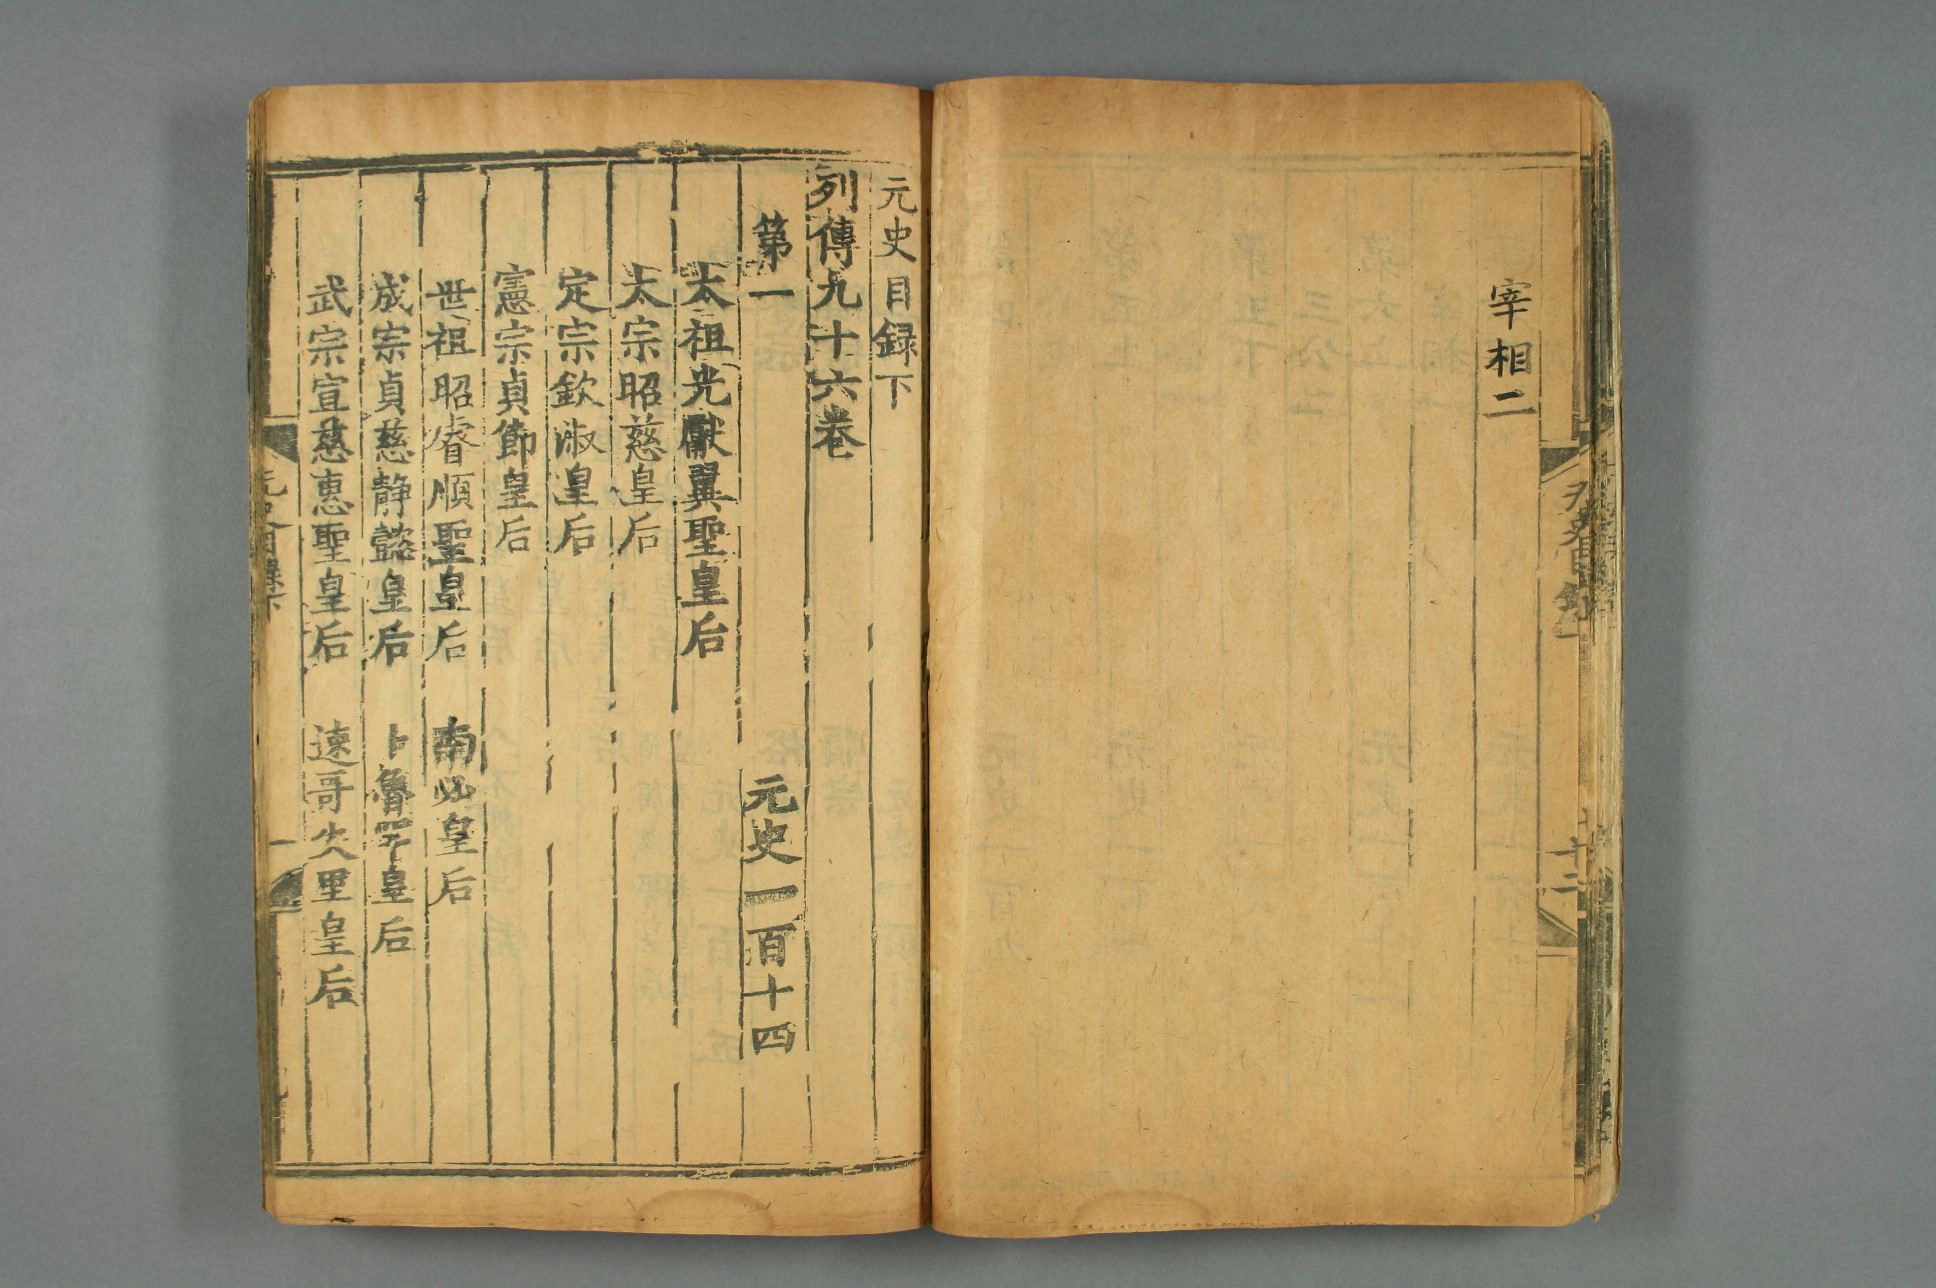 宰相二
元史目録下
列傳九十六卷
第一 元史一百十四
太祖光獻翼聖皇后
太宗昭慈皇后
定宗欽淑皇后
憲宗貞節皇后
世祖昭睿順聖皇后 南必皇后
成宗貞慈静懿皇后 卜魯罕皇后
武宗宣慈惠聖皇后 速哥失里皇后
元史目録下 一